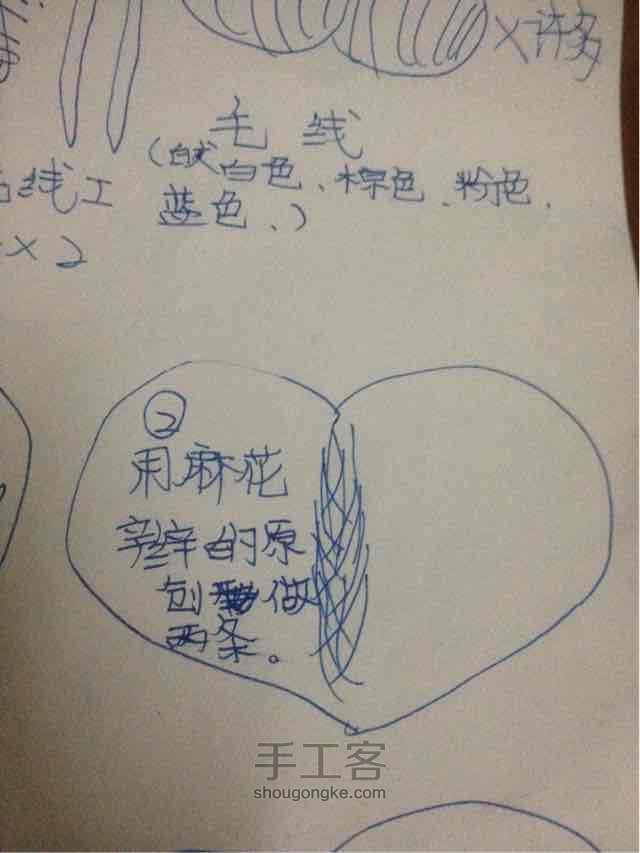 ×许多
毛 线
(白色、棕色、粉色、
蓝色、)
线工
×2
②
用麻花
辫的原
做
两条。
手工客
shougongke.com